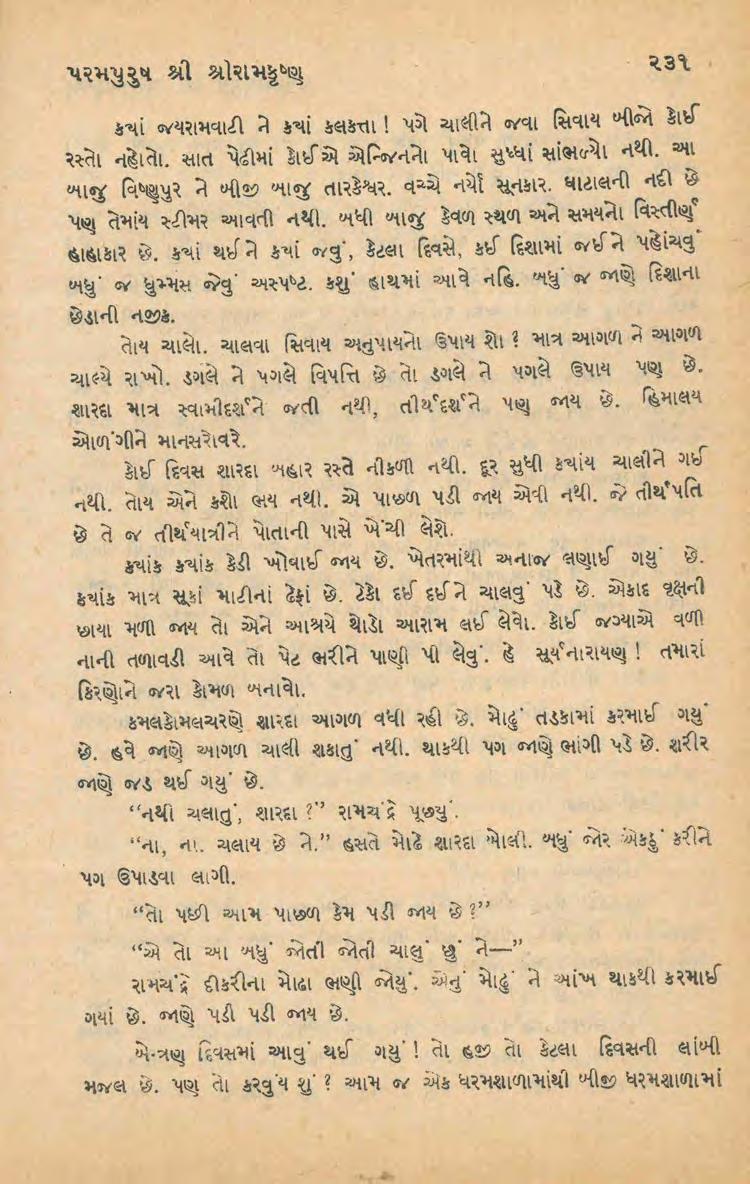 પરમપુરુષ શ્રી શ્રીરામકૃષ્ણ ૨૩૧
કયાં જયરામવાટી ને કયાં કલકત્તા! પગે ચાલીને જવા સિવાય બીજો કોઈ
રસ્તો નહોતો. સાત પેઢીમાં કોઈએ એન્જિનનો પાવો સુધ્ધાં સાંભળ્યો નથી. આ
બાજુ વિષ્ણુપુર ને બીજી બાજુ તારકેશ્વર. વચ્ચે નર્યો સૂનકાર. ઘાટાલની નદી છે
પણ તેમાંય સ્ટીમર આવતી નથી. બધી બાજુ કેવળ સ્થળ અને સમયનો વિસ્તીર્ણ
હાહાકાર છે. કયાં થઈને કયાં જવું, કેટલા દિવસે, કઈ દિશામાં જઈને પહોંચવું
બધું જ ધુમ્મસ જેવું અસ્પષ્ટ. કશું હાથમાં આવે નહિ. બધું જ જાણે દિશાના
છેડાની નજીક.
તોય ચાલો. ચાલવા સિવાય અનુપાયનો ઉપાય શો? માત્ર આગળ ને આગળ
ચાલ્યે રાખો. ડગલે ને પગલે વિપત્તિ છે તો ડગલે ને પગલે ઉપાય પણ છે.
શારદા માત્ર સ્વામીદર્શને જતી નથી, તીર્થદર્શને પણ જાય છે. હિમાલય
ઓળંગીને માનસરોવરે.
કોઈ દિવસ શારદા બહાર રસ્તે નીકળી નથી. દૂર સુધી કયાંય ચાલીને ગઈ
નથી. તોય એને કશો ભય નથી. એ પાછળ પડી જાય એવી નથી. જે તીર્થપતિ
છે તે જ તીર્થયાત્રીને પોતાની પાસે ખેંચી લેશે.
કયાંક કયાંક કેડી ખોવાઈ જાય છે. ખેતરમાંથી અનાજ લણાઈ ગયું છે.
કયાંક માત્ર સૂકાં માટીનાં ઢેફાં છે. ટેકો દઈ દઈને ચાલવું પડે છે. એકાદ વૃક્ષની
છાયા મળી જાય તો એને આશ્રયે થોડો આરામ લઈ લેવો. કોઈ જગ્યાએ વળી
નાની તળાવડી આવે તો પેટ ભરીને પાણી પી લેવું. હે સૂર્યનારાયણ! તમારાં
કિરણોને જરા કોમળ બનાવો.
કમલકોમલચરણે શારદા આગળ વધી રહી છે. મોઢું તડકામાં કરમાઈ ગયું
છે. હવે જાણે આગળ ચાલી શકાતું નથી. થાકથી પગ જાણે ભાંગી પડે છે. શરીર
જાણે જડ થઈ ગયું છે.
“નથી ચલાતું, શારદા?” રામચંદ્રે પૂછયું.
“ના, ના. ચલાય છે ને.” હસતે મોઢે શારદા બોલી. બધું જોર એકઠું કરીને
પગ ઉપાડવા લાગી.
“તો પછી આમ પાછળ કેમ પડી જાય છે?”
“એ તો આ બધું જોતી જોતી ચાલું છું ને—”
રામચંદ્રે દીકરીના મોઢા ભણી જોયું. એનું મોઢું ને આંખ થાકથી કરમાઈ
ગયાં છે. જાણે પડી પડી જાય છે.
બે-ત્રણ દિવસમાં આવું થઈ ગયું! તો હજી તો કેટલા દિવસની લાંબી
મજલ છે. પણ તો કરવુંય શું? આમ જ એક ધરમશાળામાંથી બીજી ધરમશાળામાં